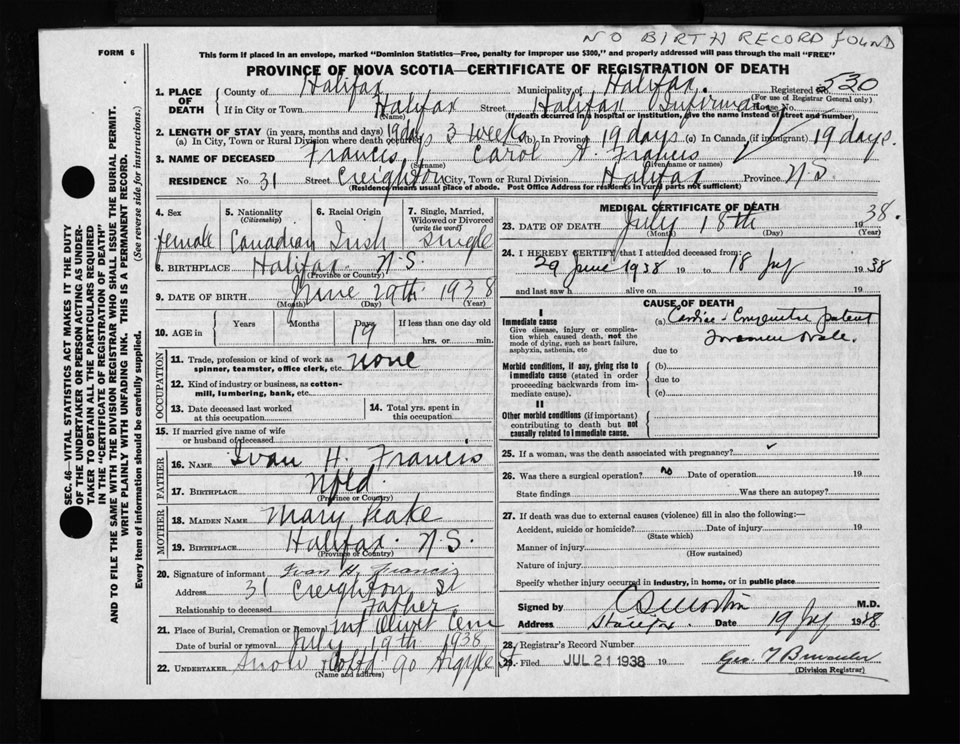 NO BIRTH RECORD FOUND
FORM 6
This form if placed in an envelope, marked "Dominion Statistics—Free, penalty for improper use $300," and properly addressed will pass through the mail "FREE"
PROVINCE OF NOVA SCOTIA—CERTIFICATE OF REGISTRATION OF DEATH
1. PLACE OF DEATH County of Halifax Municipality of Halifax. Registered No. 530
(For use of Registrar General only)
If in City or Town Halifax Street Halifax Infirmary House No.
(Name) (If death occurred in a hospital or institution, give the name instead of street and number)
2. LENGTH OF STAY (in years, months and days)
(a) In City, Town or Rural Division where death occurred 19 days 3 weeks (b) In Province 19 days (c) In Canada (if immigrant) 19 days.
3. NAME OF DECEASED Francis Carol A. Francis
(Surname) (Given name or names)
RESIDENCE No. 31 Street Creighton City, Town or Rural Division Halifax Province N.S.
(Residence means usual place of abode. Post Office Address for residents in rural parts not sufficient)
4. Sex 5. Nationality (Citizenship) 6. Racial Origin 7. Single, Married, Widowed or Divorced (write the word)
female Canadian Irish single
8. BIRTHPLACE Halifax. N.S.
(Province or Country)
9. DATE OF BIRTH June 29th 1938
(Month) (Day) (Year)
10. AGE in Years Months Days If less than one day old
19 hrs. or min.
OCCUPATION
11. Trade, profession or kind of work as spinner, teamster, office clerk, etc. none
12. Kind of industry or business, as cotton-mill, lumbering, bank, etc.
13. Date deceased last worked at this occupation
14. Total yrs. spent in this occupation
15. If married give name of wife or husband of deceased
FATHER
16. NAME Ivan H. Francis
17. BIRTHPLACE Nfld.
(Province or Country)
MOTHER
18. MAIDEN NAME Mary Peake
19. BIRTHPLACE Halifax. N.S.
(Province or Country)
20. Signature of informant Ivan H. Francis
Address 31 Creighton St
Relationship to deceased Father
21. Place of Burial, Cremation or Removal Mt Olivet Cem
Date of burial or removal July 19th 1938
22. UNDERTAKER Snow Co Ltd 90 Argyle St
(Name and address)
MEDICAL CERTIFICATE OF DEATH
23. DATE OF DEATH July 18th 1938.
(Month) (Day) (Year)
24. I HEREBY CERTIFY that I attended deceased from:
29 June 1938 19 to 18 July 1938
and last saw h alive on 19
CAUSE OF DEATH
I
Immediate cause
Give disease, injury or complication which caused death, not the mode of dying, such as heart failure, asphyxia, asthenia, etc
(a) Cardiac - Congenital patent
foramen ovale.
due to
Morbid conditions, if any, giving rise to immediate cause (stated in order proceeding backwards from immediate cause).
(b)
due to
(c)
II
Other morbid conditions (if important) contributing to death but not causally related to immediate cause.
25. If a woman, was the death associated with pregnancy?
26. Was there a surgical operation? no Date of operation 19
State findings Was there an autopsy?
27. If death was due to external causes (violence) fill in also the following:—
Accident, suicide or homicide? Date of injury 19
(State which)
Manner of injury
(How sustained)
Nature of injury
Specify whether injury occurred in industry, in home, or in public place
Signed by M.D.
Address Halifax Date 19 July 1938
28. Registrar's Record Number
29. Filed JUL 21 1938 19
(Division Registrar)
SEC. 46—VITAL STATISTICS ACT MAKES IT THE DUTY
OF THE UNDERTAKER OR PERSON ACTING AS UNDERTAKER TO OBTAIN ALL THE PARTICULARS REQUIRED
IN THE "CERTIFICATE OF REGISTRATION OF DEATH"
AND TO FILE THE SAME WITH THE DIVISION REGISTRAR WHO SHALL ISSUE THE BURIAL PERMIT.
WRITE PLAINLY WITH UNFADING INK. THIS IS A PERMANENT RECORD.
Every item of information should be carefully supplied. (See reverse side for instructions.)